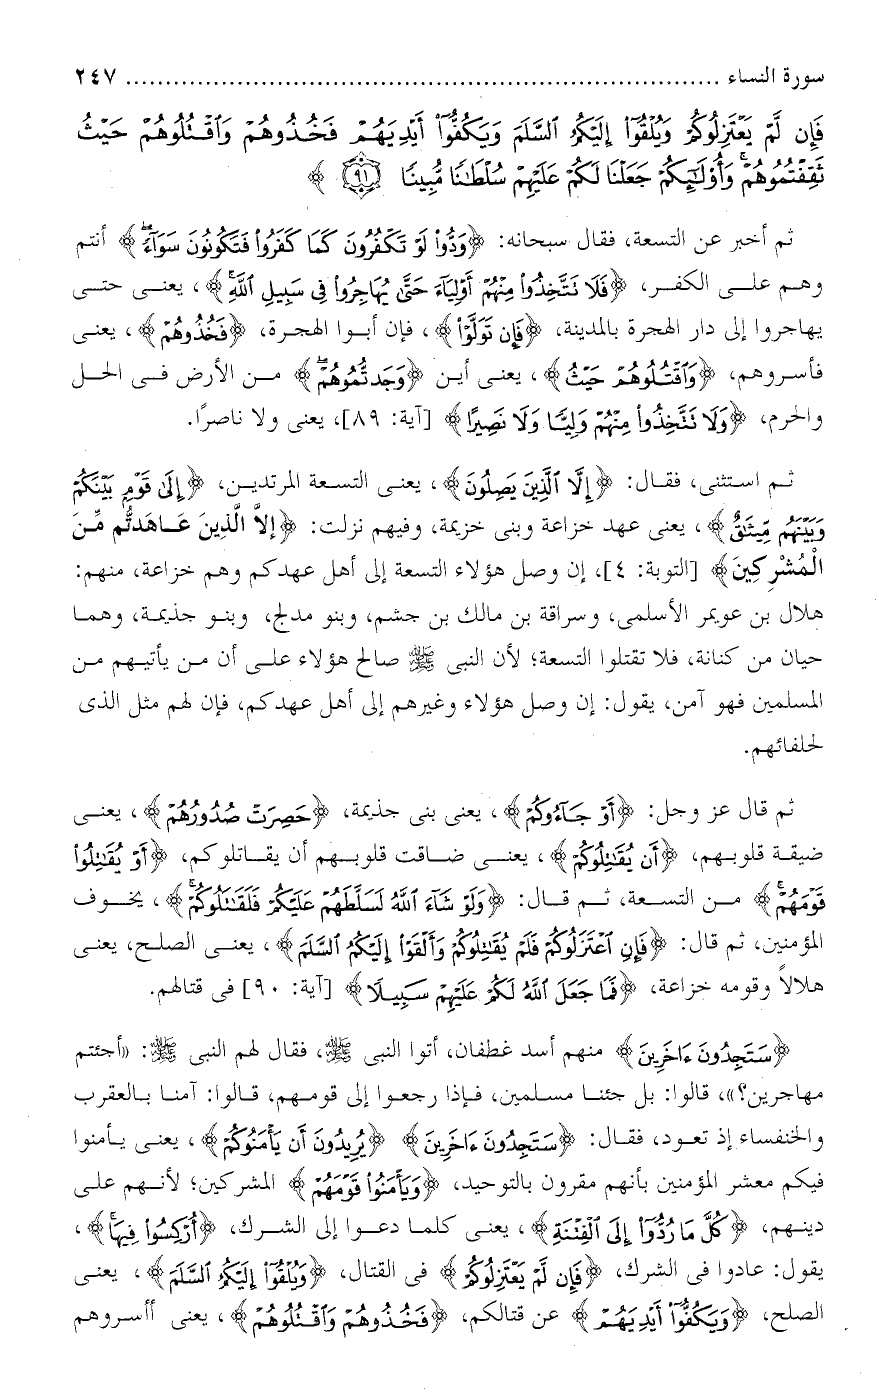 سورة النساء ........................................................................... ٢٤٧
فَإِن لَّمْ يَعْتَزِلُوكُمْ وَيُلْقُوٓا۟ إِلَيْكُمُ ٱلسَّلَمَ وَيَكُفُّوٓا۟ أَيْدِيَهُمْ فَخُذُوهُمْ وَٱقْتُلُوهُمْ حَيْثُ
ثَقِفْتُمُوهُمْ ۚ وَأُو۟لَـٰٓئِكُمْ جَعَلْنَا لَكُمْ عَلَيْهِمْ سُلْطَـٰنًا مُّبِينًا ﴿٩١﴾ ﴾
ثم أخبر عن التسعة، فقال سبحانه: ﴿وَدُّوا۟ لَوْ تَكْفُرُونَ كَمَا كَفَرُوا۟ فَتَكُونُونَ سَوَآءً ۖ﴾ أنتم
وهم على الكفر، ﴿فَلَا تَتَّخِذُوا۟ مِنْهُمْ أَوْلِيَآءَ حَتَّىٰ يُهَاجِرُوا۟ فِى سَبِيلِ ٱللَّهِ ۚ﴾، يعنى حتى
يهاجروا إلى دار الهجرة بالمدينة، ﴿فَإِن تَوَلَّوْا۟﴾، فإن أبوا الهجرة، ﴿فَخُذُوهُمْ﴾، يعنى
فأسروهم، ﴿وَٱقْتُلُوهُمْ حَيْثُ﴾، يعنى أين ﴿وَجَدتُّمُوهُمْ ۖ﴾ من الأرض فى الحل
والحرم، ﴿وَلَا تَتَّخِذُوا۟ مِنْهُمْ وَلِيًّا وَلَا نَصِيرًا﴾ [آية: ٨٩]، يعنى ولا ناصرًا.
ثم استثنى، فقال: ﴿إِلَّا ٱلَّذِينَ يَصِلُونَ﴾، يعنى التسعة المرتدين، ﴿إِلَىٰ قَوْمٍ بَيْنَكُمْ
وَبَيْنَهُم مِّيثَـٰقٌ﴾، يعنى عهد خزاعة وبنى خزيمة، وفيهم نزلت: ﴿إلاَّ الَّذِينَ عَـاهَدتُّم مِّنَ
الْمُشْرِكِينَ﴾ [التوبة: ٤]، إن وصل هؤلاء التسعة إلى أهل عهدكم وهم خزاعة، منهم:
هلال بن عويمر الأسلمى، وسراقة بن مالك بن جشم، وبنو مدلج، وبنو جذيمة، وهما
حيان من كنانة، فلا تقتلوا التسعة؛ لأن النبى ﷺ صالح هؤلاء على أن من يأتيهم من
المسلمين فهو آمن، يقول: إن وصل هؤلاء وغيرهم إلى أهل عهدكم، فإن لهم مثل الذى
لحلفائهم.
ثم قال عز وجل: ﴿أَوْ جَآءُوكُمْ﴾، يعنى بنى جذيمة، ﴿حَصِرَتْ صُدُورُهُمْ﴾، يعنى
ضيقة قلوبهم، ﴿أَن يُقَـٰتِلُوكُمْ﴾، يعنى ضاقت قلوبهم أن يقاتلوكم، ﴿أَوْ يُقَـٰتِلُوا۟
قَوْمَهُمْ ۚ﴾ من التسعة، ثم قال: ﴿وَلَوْ شَآءَ ٱللَّهُ لَسَلَّطَهُمْ عَلَيْكُمْ فَلَقَـٰتَلُوكُمْ ۚ﴾، يخوف
المؤمنين، ثم قال: ﴿فَإِنِ ٱعْتَزَلُوكُمْ فَلَمْ يُقَـٰتِلُوكُمْ وَأَلْقَوْا۟ إِلَيْكُمُ ٱلسَّلَمَ﴾، يعنى الصلح، يعنى
هلالاً وقومه خزاعة، ﴿فَمَا جَعَلَ ٱللَّهُ لَكُمْ عَلَيْهِمْ سَبِيلًا﴾ [آية: ٩٠] فى قتالهم.
﴿سَتَجِدُونَ ءَاخَرِينَ﴾ منهم أسد غطفان، أتوا النبى ﷺ، فقال لهم النبى ﷺ: «أجئتم
مهاجرين؟»، قالوا: بل جئنا مسلمين، فإذا رجعوا إلى قومهم، قالوا: آمنا بالعقرب
والخنفساء إذ تعود، فقال: ﴿سَتَجِدُونَ ءَاخَرِينَ﴾ ﴿يُرِيدُونَ أَن يَأْمَنُوكُمْ﴾، يعنى يأمنوا
فيكم معشر المؤمنين بأنهم مقرون بالتوحيد، ﴿وَيَأْمَنُوا۟ قَوْمَهُمْ﴾ المشركين؛ لأنهم على
دينهم، ﴿كُلَّ مَا رُدُّوٓا۟ إِلَى ٱلْفِتْنَةِ﴾، يعنى كلما دعوا إلى الشرك، ﴿أُرْكِسُوا۟ فِيهَا ۚ﴾،
يقول: عادوا فى الشرك، ﴿فَإِن لَّمْ يَعْتَزِلُوكُمْ﴾ فى القتال، ﴿وَيُلْقُوٓا۟ إِلَيْكُمُ ٱلسَّلَمَ﴾، يعنى
الصلح، ﴿وَيَكُفُّوٓا۟ أَيْدِيَهُمْ﴾ عن قتالكم، ﴿فَخُذُوهُمْ وَٱقْتُلُوهُمْ﴾، يعنى أأسروهم